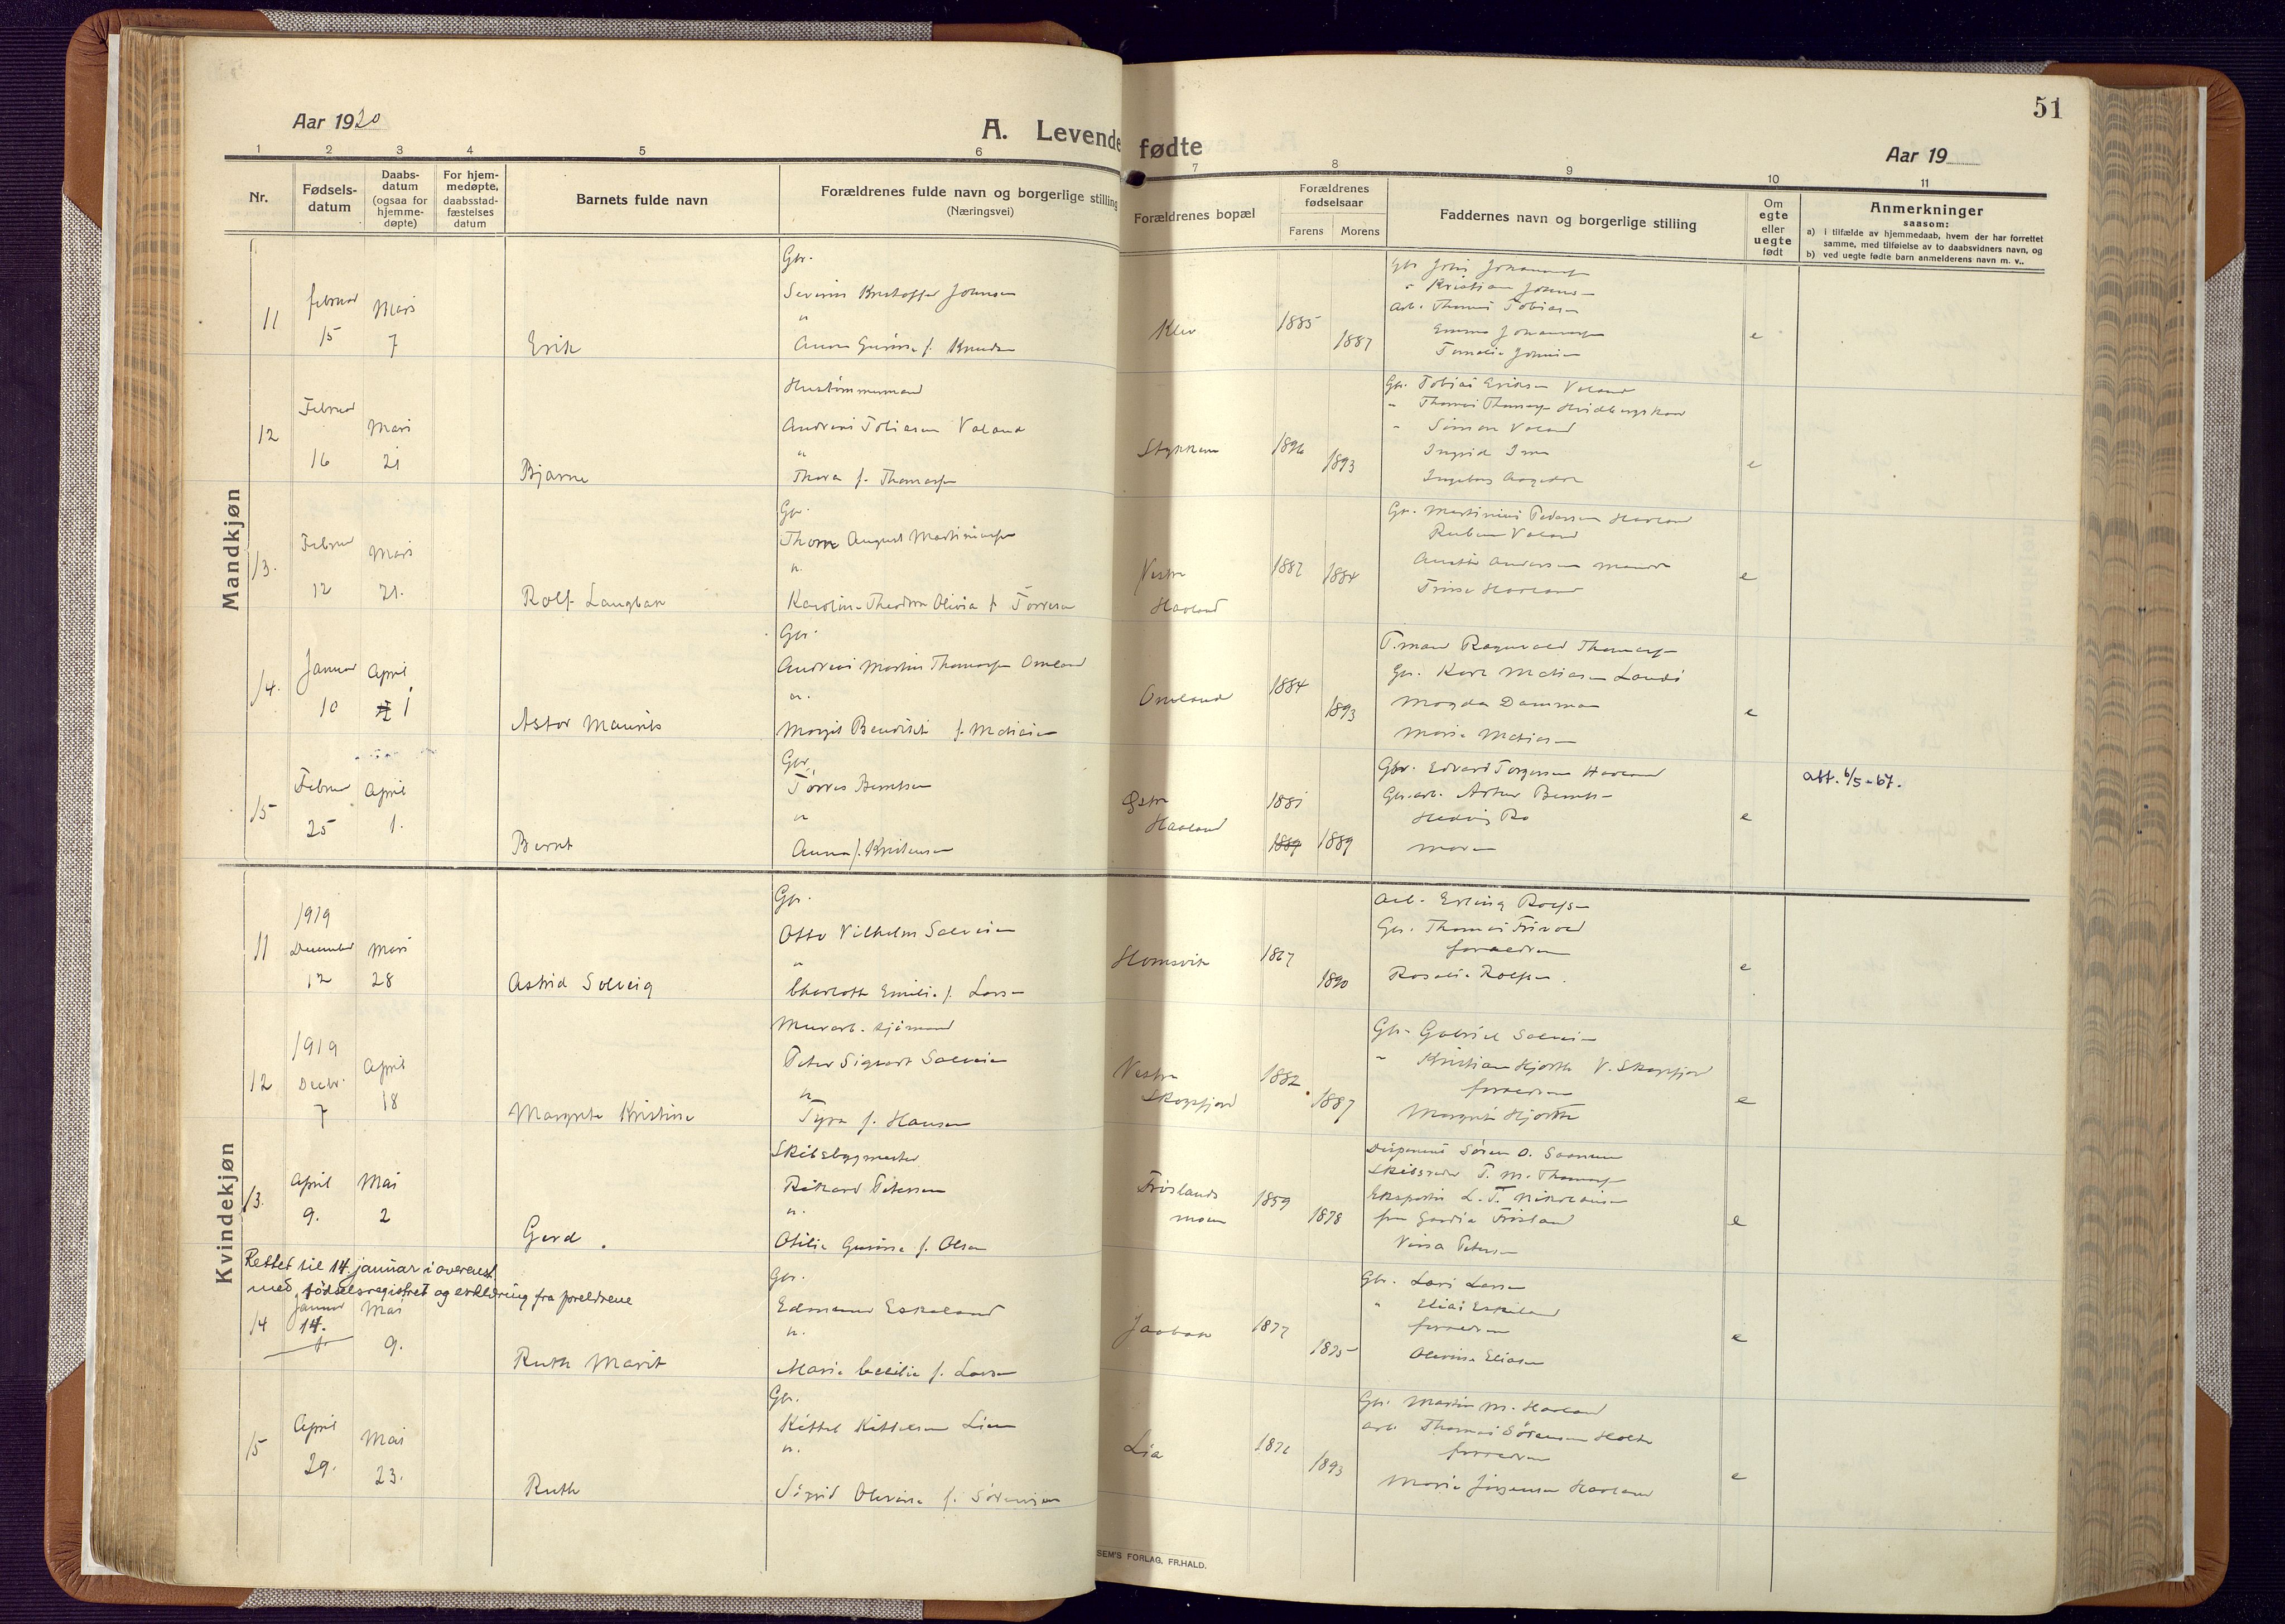 51
Aar 1920
A. Levende fødte
Aar 19
1 2 3 4 5 6 7 8 9 10 11
Nr.
Fødsels-
datum
Daabs-
datum
(ogsaa for
hjemme-
døpte)
For hjem-
medøpte,
daabsstad-
fæstelses
datum
Barnets fulde navn
Forældrenes fulde navn og borgerlige stilling
(Næringsvei)
Forældrenes bopæl
Forældrenes
fødselsaar
Farens Morens
Faddernes navn og borgerlige stilling
Om
egte
eller
uegte
født
Anmerkninger
saasom:
a) i tilfælde av hjemmedaab, hvem der har forrettet
samme, med tilføielse av to daabsvidners navn, og
b) ved uegte fødte barn anmelderens navn m. v..
Mandkjøn
11
februar
15
Mars
7
Erik
Gbr.
Severin Kristoffer Johnsen
Anna Gurine f. Knudsen
Klev
1885
1887
Gbr. John Johannesen
" Kristian Johnsen
Arb. Thomas Tobiasen
Emma Johannesen
Tomelia Johnsen
e
12
Februar
16
Mars
21
Bjarne
Hustømmermand
Andreas Tobiasen Valand
Thora f. Thomassen
1896
1893
Gbr. Tobias Eriksen Valand
Simon Valand
Ingeborg
e
13.
Februar
12
Mars
21.
Rolf Langbak
Gbr.
Thom August Martiniussen
Karoline Theodora Olivia f. Torresen
Vestre
Haaland
1882
1884
Gbr. Martinius Pedersen Haaland
Ruben Valand
Trine Haaland
e
14.
Januar
10
April
1
Astor Maurits
Gbr.
Andreas Martin Thomassen Omland
Margit Bendikte f. Mathiasen
Omland
1884
1893
T.mand Ragnvald Thomassen
Gbr. Karl Mathiasen Landø
Magda Damman
Marie Mathiasen
e
15
Februar
25
April
1.
Bernt
Gbr.
Torres Berntsen
Anna f. Kristensen
Østre
Haaland
1881
1889
1889
Gbr. Edvard Torgersen Haaland
Gbr.arb. Arthur Berntsen
Hedvig Bo
moren
e
att. 6/5-67.
Kvindekjøn
11
1919
December
12
Mars
28
Astrid Solveig
Gbr.
Otto Vilhelm Salvesen
Charlotte Emilie f. Larsen
Homsvik
1867
1890
Arb. Erling Rolfsen
Gbr. Thomas Frivold
forældrene
Rosalie Rolfsen.
e
12
1919
Decbr.
7
April
18
Margrete Kristine
Murarb. sjømand
Peter Sigvart Salvesen
Tyra f. Hansen
Vestre
Skogsfjord
1882
1887
Gbr. Gabriel Salvesen
" Kristian Hjorth V. Skogsfjord
forældrene
Margrete Hjorth
e
13.
April
9.
Mai
2
Gerd
Skibsbygmester
Rikard Petersen
Otilie Gurine f. Olsen
Frøslands
moen
1859
1878
Disponent Søren O. Saanum
Skibsreder T. M. Thomassen
Eksportør L. T. Nikolaisen
fru Gardia Frøsland
Petersen
e
Rettet til 14. januar i overenst.
med fødselsregistret og erklæring fra foreldrene
14
Januar
14.
Mai
9.
Ruth Marit
Gbr.
Edmund Eskeland
Marie Cecilie f. Larsen
Jaabæk
1877
1875
Gbr. Lars Larsen
" Elias Eskeland
forældrene
Olevine Eliasen
e
15
April
29.
Mai
23.
Ruth
Gbr.
Kittel Kittelsen Lien
Sigrid Olevine f. Sørensen
Lia
1893
Gbr. Martin M. Haaland
arb. Thomas Sørensen Holte
forældrene
Marie Jørgensen Haaland
e
SEM'S FORLAG, FR.HALD.